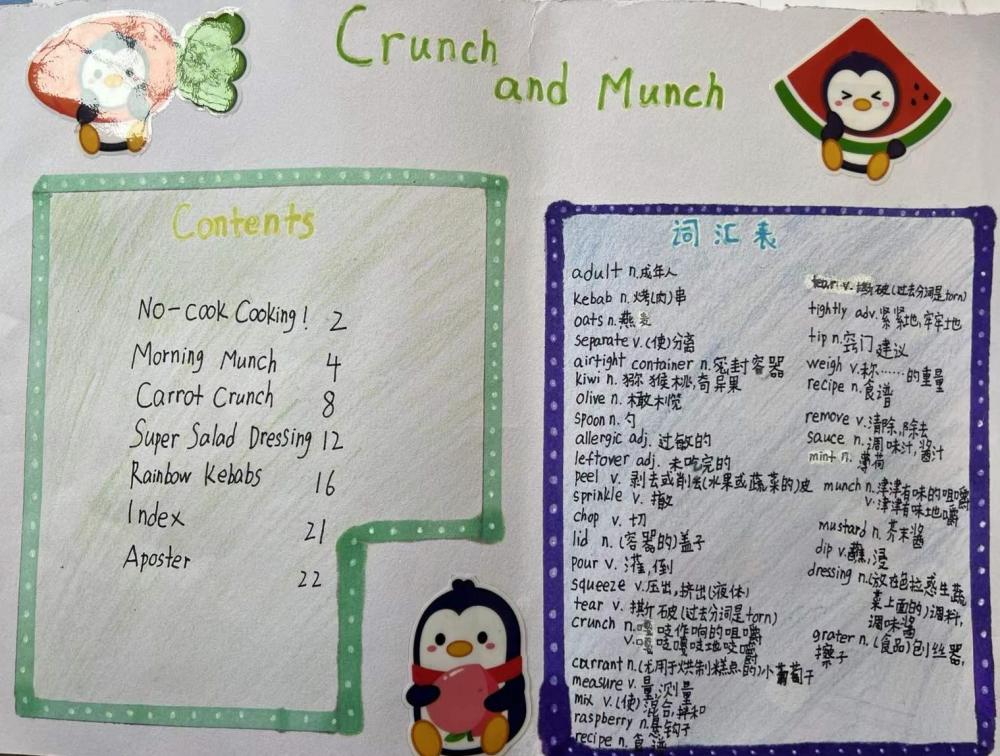 Crunch
and Munch
Contents
No-cook Cooking! 2
Morning Munch 4
Carrot Crunch 8
Super Salad Dressing 12
Rainbow Kebabs 16
Index 21
Aposter 22
词汇表
adult n.成年人
kebab n.烤(肉)串
oats n.燕麦
separate v.(使)分离
airtight container n.密封容器
kiwi n.猕猴桃,奇异果
olive n.橄榄
spoon n.勺
allergic adj.过敏的
leftover adj.未吃完的
peel v.剥去或削去(水果或蔬菜的)皮
sprinkle v.撒
chop v.切
lid n.(容器的)盖子
pour v.灌,倒
squeeze v.压出,挤出(液体)
tear v.撕破(过去分词是torn)
crunch n.嘎吱作响的咀嚼
v.嘎吱嘎吱地咬嚼
currant n.(尤用于烘制糕点的)小葡萄干
measure v.量,测量
mix v.(使)混合,拌和
raspberry n.悬钩子
recipe n.食谱
tear v.撕破(过去分词是torn)
tightly adv.紧紧地,牢牢地
tip n.窍门 建议
weigh v.称……的重量
recipe n.食谱
remove v.清除,除去
sauce n.调味汁,酱汁
mint n.薄荷
munch n.津津有味的咀嚼
v.津津有味地嚼
mustard n.芥末酱
dip v.蘸,浸
dressing n.(放在色拉或生蔬
菜上面的)调料,
调味酱
grater n.(食品)刨丝器,
擦子